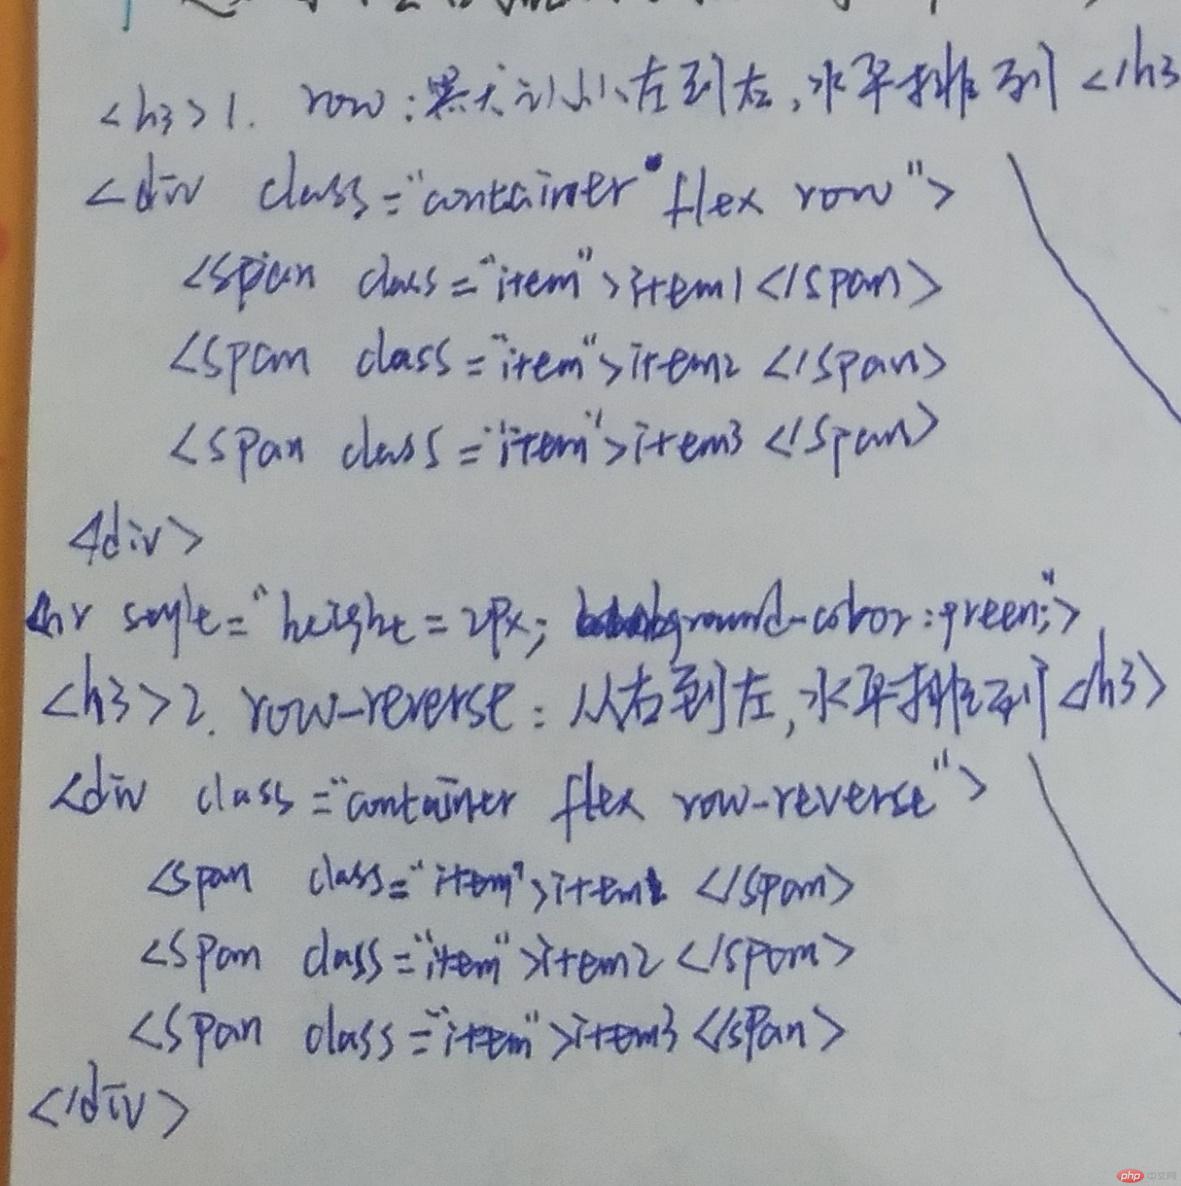 <h3>1. row:默认从左到右,水平排列</h3
<div class="container flex row">
<span class="item">item1</span>
<span class="item">item2</span>
<span class="item">item3</span>
</div>
<hr style="height=2px; background-color:green;">
<h3>2. row-reverse:从右到左,水平排列</h3>
<div class="container flex row-reverse">
<span class="item">item1</span>
<span class="item">item2</span>
<span class="item">item3</span>
</div>
php 中文网